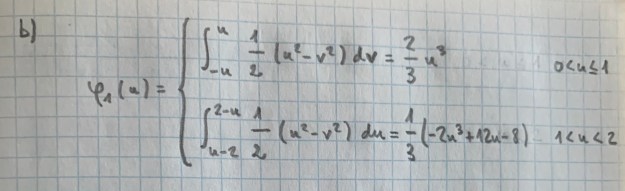 b)
φ₁(u) = { ∫_{-u}^{u} 1/2 (u²-v²) dv = 2/3 u³ 0<u≤1
∫_{u-2}^{2-u} 1/2 (u²-v²) du = 1/3 (-2u³+12u-8) 1<u<2